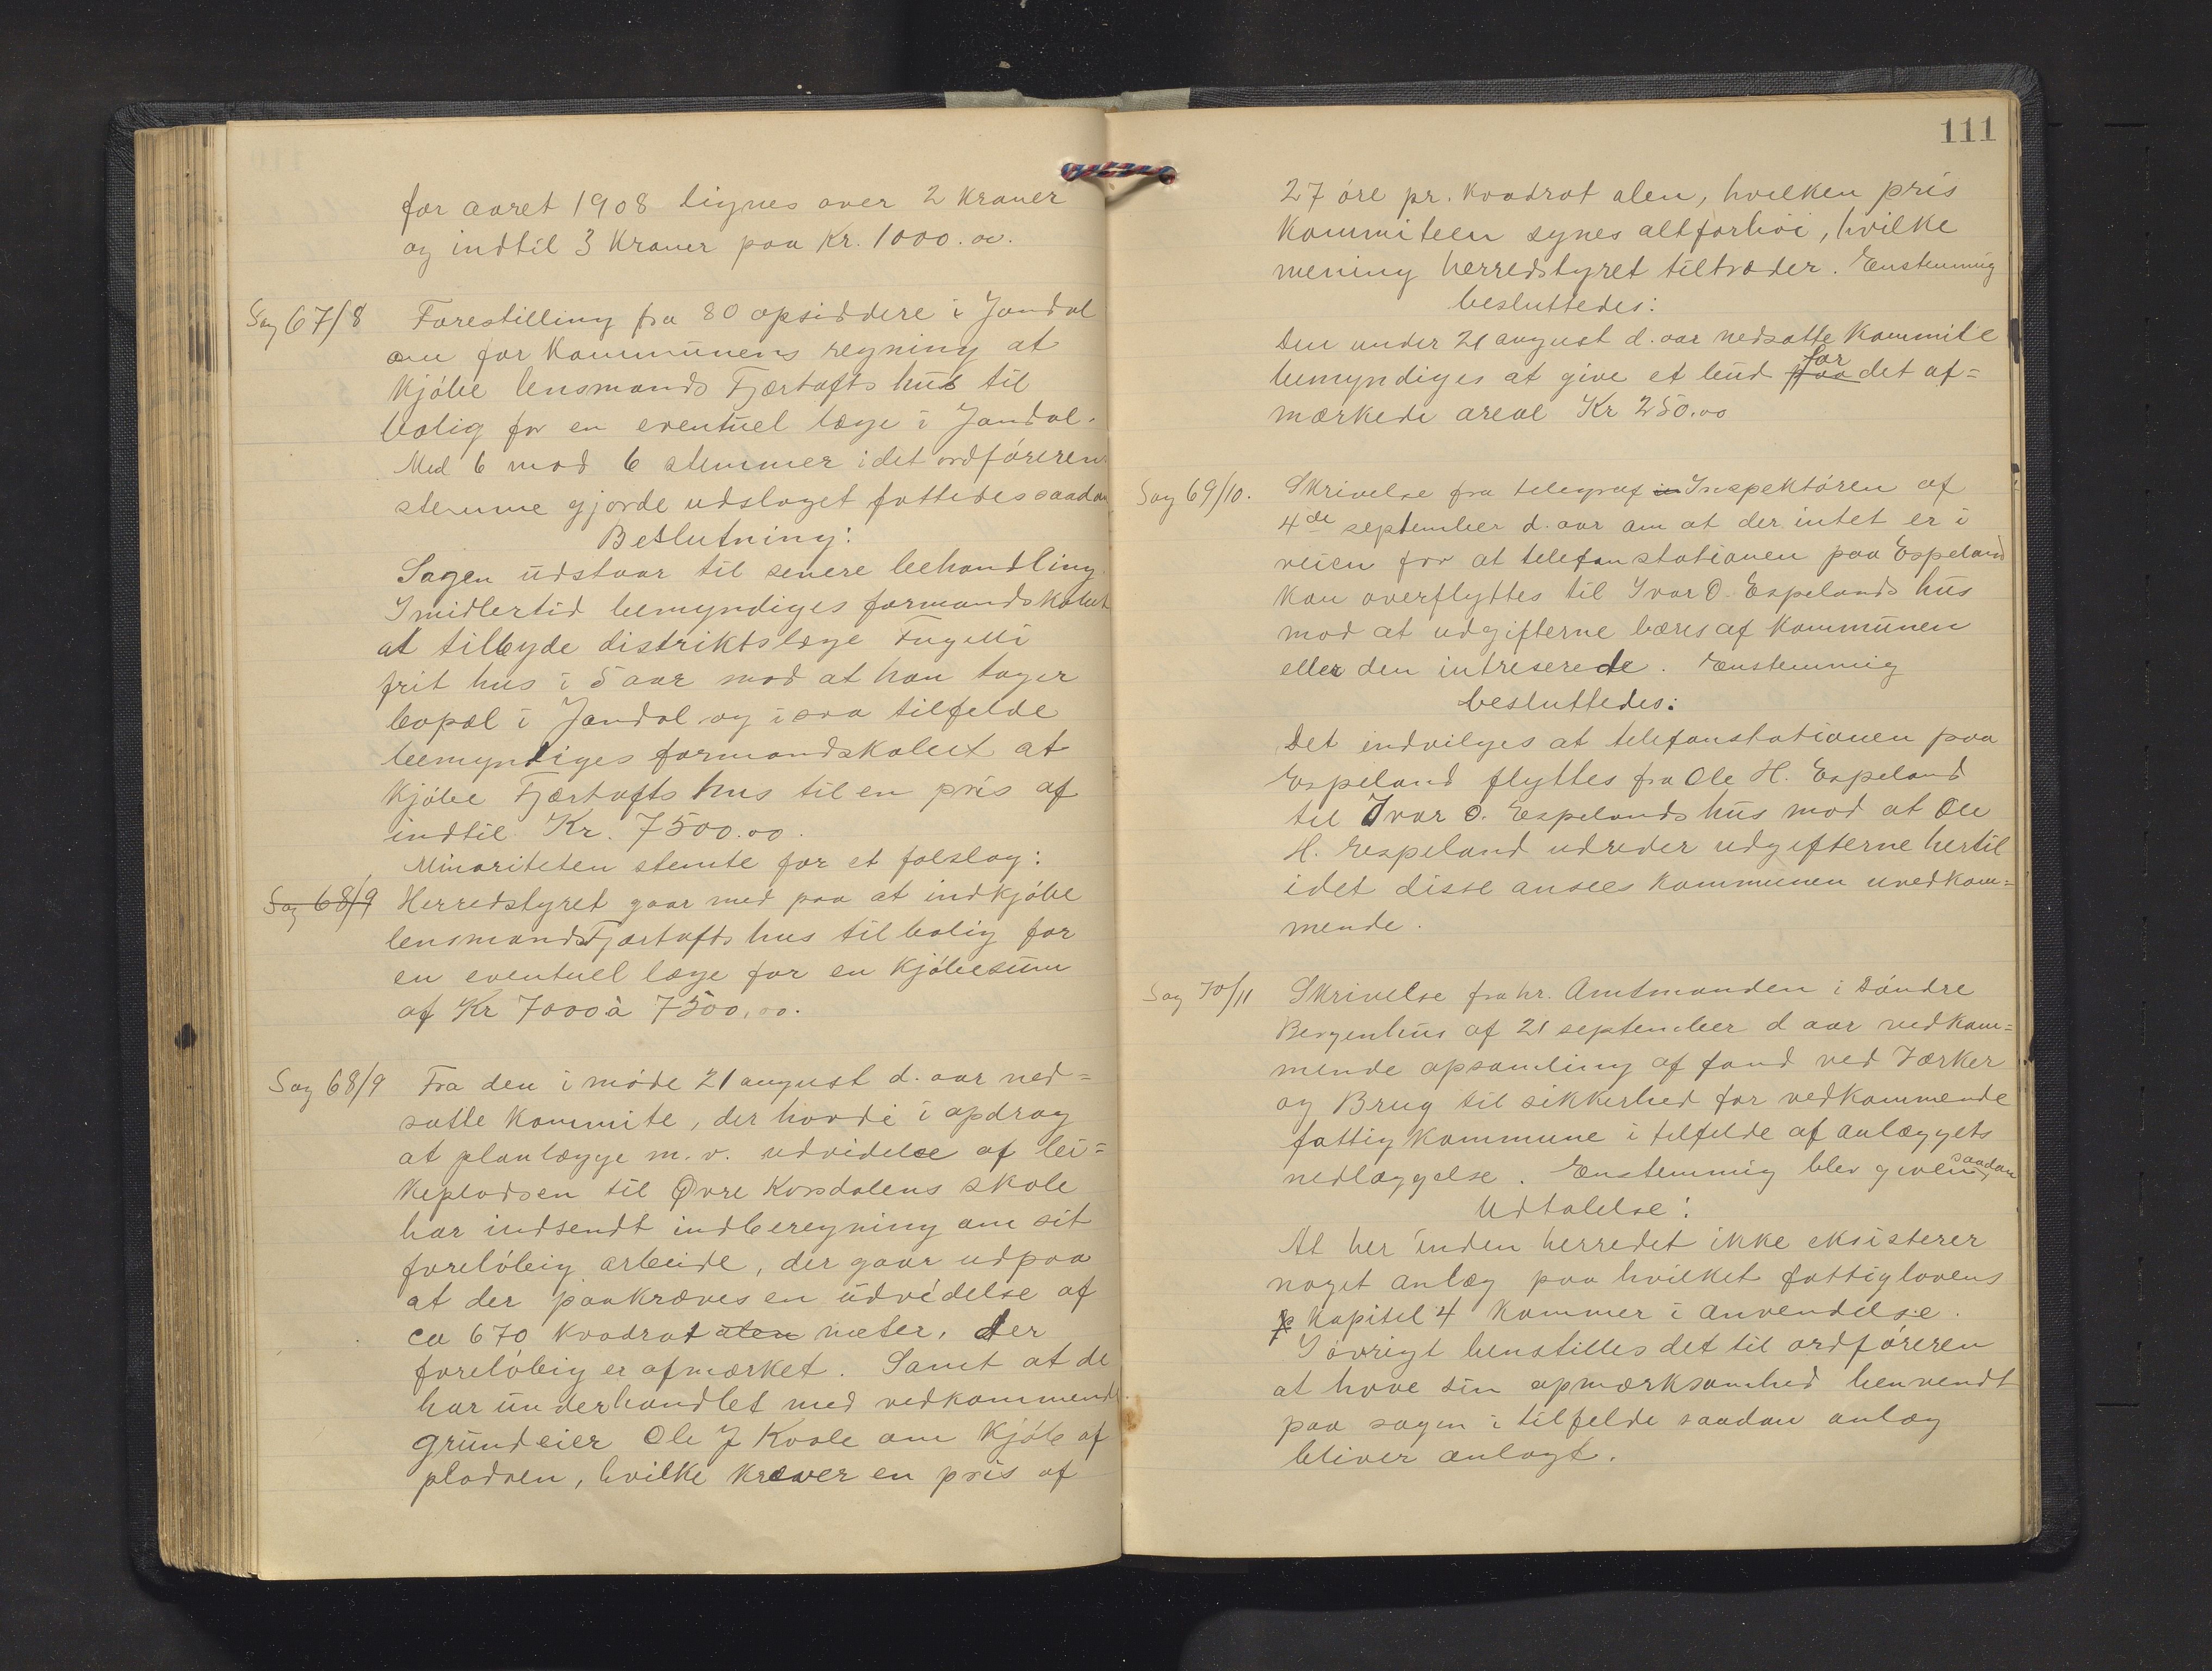 for aaret 1908 lignes over 2 Kroner
og indtil 3 Kroner paa Kr. 1000.00.
Sag 67/8 Forestilling fra 80 opsiddere i Jondal
om for Kommunens regning at
Kjøbe lensmands Fjærtofts hus til
bolig for en eventuel læge i Jondal.
Med 6 mod 6 stemmer idet ordførerens
stemme gjorde udslaget fattedes saadan
Beslutning:
Sagen udstaar til senere behandling.
Imidlertid bemyndiges formandskabet
at tilbyde distriktslæge Fugelli
frit hus i 5 aar mod at han tager
bopæl i Jondal og i saa tilfelde
bemyndiges formandskabet at
Kjøbe Fjærtofts hus til en pris af
indtil Kr. 7500.00.
Minoriteten stemte for et forslag:
Sag 68/9 Herredstyret gaar med paa at indkjøbe
lensmands Fjærtofts hus til bolig for
en eventuel læge for en Kjøbesum
af Kr 7000 à 7500,00.
Sag 68/9 Fra den i møde 21 august d. aar ned=
satte Kommite, der havde i opdrag
at planlægge m. v. udvidelse af lei=
kepladsen til Øvre Krosdalens skole
har indsendt indberegning om sit
foreløbig arbeide, der gaar udpaa
at der paakræves en udvidelse af
ca 670 kvadrat alen meter, der
foreløbig er afmærket. Samt at de
har underhandlet med vedkommende
grundeier Ole J Kvale om Kjøb af
pladsen, hvilke kræver en pris af
111
27 øre pr. Kvadrat alen, hvilken pris
Kommiteen synes altforhøi, hvilke
mening herredstyret tiltræder. Enstemmig
besluttedes:
Den under 21 august d. aar nedsatte Kommite
for
bemyndiges at give et bud paa det af=
mærkede areal Kr 250.00
Sag 69/10. Skrivelse fra telegraf in Inspektøren af
4de september d. aar om at der intet er i
veien for at telefonstationen paa Espeland
kan overflyttes til Ivar O. Espelands hus
mod at udgifterne bæres af Kommunen
eller den intreserede. Enstemmig
besluttedes:
Det indvilges at telefonstationen paa
Espeland flyttes fra Ole H. Espeland
til Ivar O. Espelands hus mod at Ole
H. Espeland udreder udgifterne hertil
idet disse ansees Kommunen uvedkom=
mende.
Sag 70/11 Skrivelse fra hr. Amtmanden i Søndre
Bergenhus af 21 september d aar vedkom=
mende opsamling af fond ved Værker
og Brug til sikkerhed for vedkommende
fattig Kommune i tilfelde af anlæggets
nedlæggelse. Enstemmig blev given saadan
Udtalelse:
At her inden herredet ikke eksisterer
noget anlæg paa hvilket fattiglovens
p Kapitel 4 Kommer i anvendelse.
I øvrigt henstilles det til ordføreren
at have sin opmærksomhed henvendt
paa sagen i tilfelde saadan anlæg
bliver anlagt.